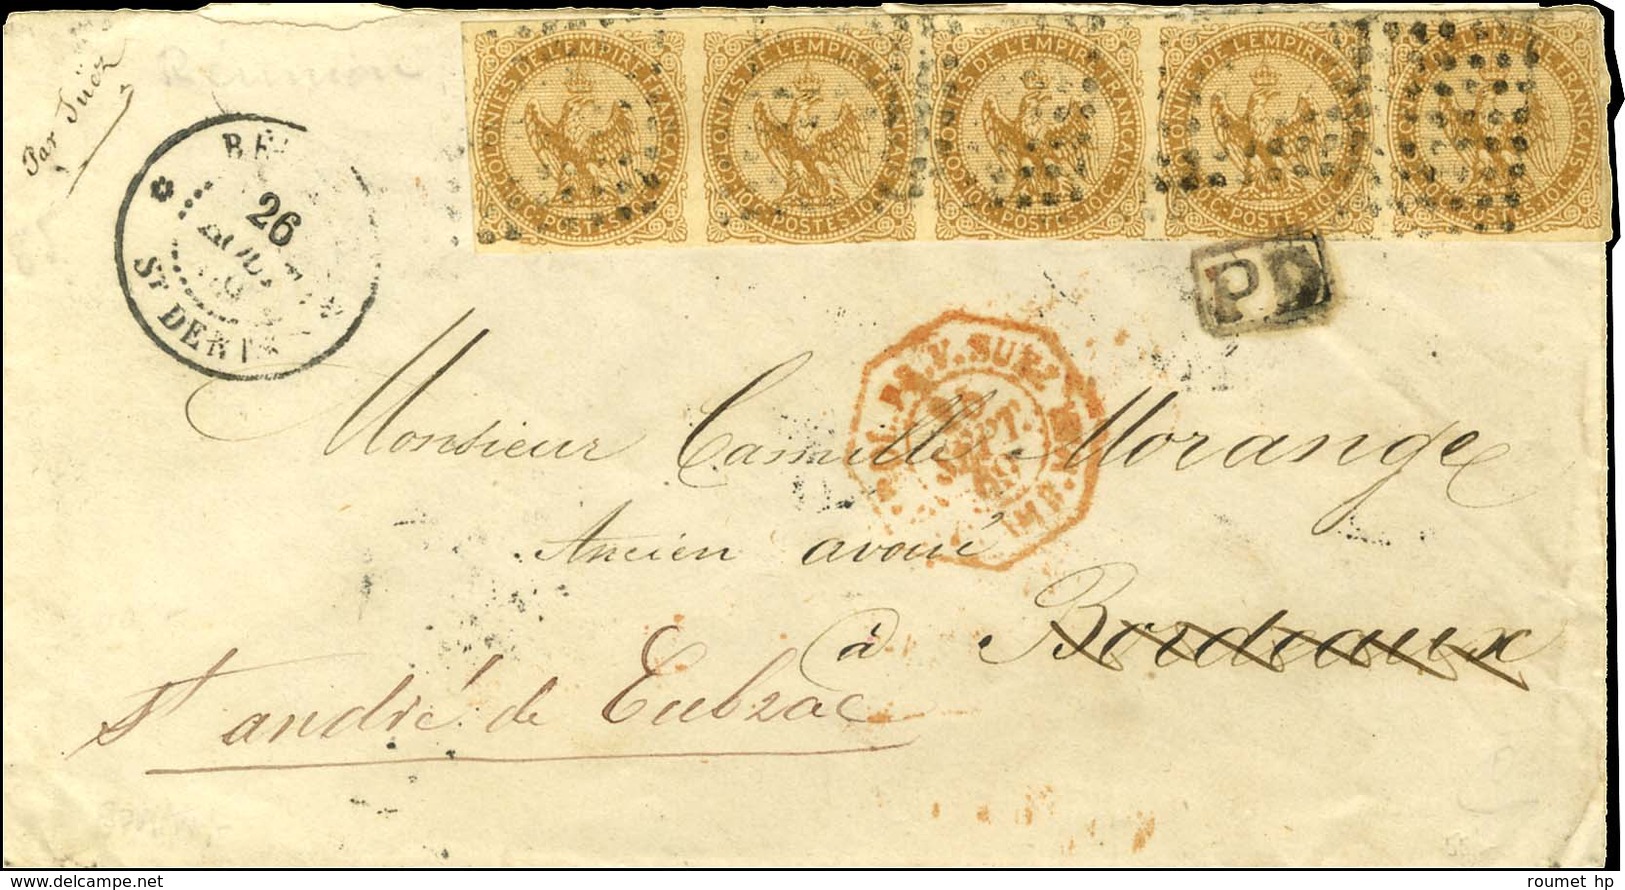 Par Suëz
Réunion
COLONIES DE L'EMPIRE FRANÇAIS
10 C. POSTES. 10 C.
COLONIES DE L'EMPIRE FRANÇAIS
10 C. POSTES. 10 C.
COLONIES DE L'EMPIRE FRANÇAIS
10 C. POSTES. 10 C.
COLONIES DE L'EMPIRE FRANÇAIS
10 C. POSTES. 10 C.
COLONIES DE L'EMPIRE FRANÇAIS
10 C. POSTES. 10 C.
26
AOUT
ST DENIS
PD
V. SUEZ
SEPT.
Monsieur Camille Morange
Ancien avoué
à Bordeaux
St andré de Cubzac
roumet hp
delcampe.net